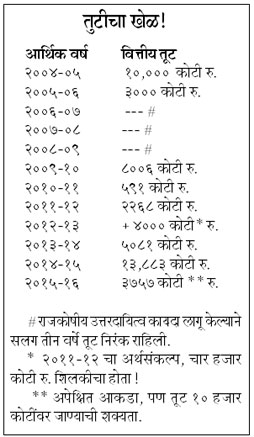 तुटीचा खेळ!
आर्थिक वर्ष वित्तीय तूट
२००४-०५ १०,००० कोटी रु.
२००५-०६ ३००० कोटी रु.
२००६-०७ --- #
२००७-०८ --- #
२००८-०९ --- #
२००९-१० ८००६ कोटी रु.
२०१०-११ ५९१ कोटी रु.
२०११-१२ २२६८ कोटी रु.
२०१२-१३ + ४००० कोटी* रु.
२०१३-१४ ५०८१ कोटी रु.
२०१४-१५ १३,८८३ कोटी रु.
२०१५-१६ ३७५७ कोटी ** रु.
# राजकोषीय उत्तरदायित्व कायदा लागू केल्याने
सलग तीन वर्षे तूट निरंक राहिली.
* २०११-१२ चा अर्थसंकल्प, चार हजार
कोटी रु. शिलकीचा होता !
** अपेक्षित आकडा, पण तूट १० हजार
कोटींवर जाण्याची शक्यता.